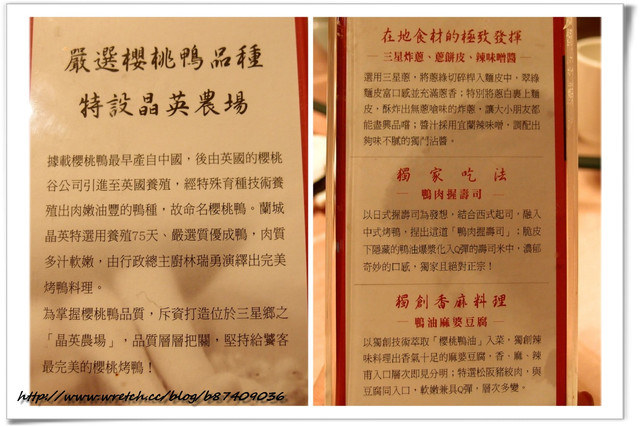 嚴選櫻桃鴨品種
特設晶英農場
據載櫻桃鴨最早產自中國，後由英國的櫻桃
谷公司引進至英國養殖，經特殊育種技術養
殖出肉嫩油豐的鴨種，故命名櫻桃鴨。蘭城
晶英特選用養殖75天、嚴選質優成鴨，肉質
多汁軟嫩，由行政總主廚林瑞勇演繹出完美
烤鴨料理。
為掌握櫻桃鴨品質，斥資打造位於三星鄉之
「晶英農場」，品質層層把關，堅持給饕客
最完美的櫻桃烤鴨！
在地食材的極致發揮
三星炸蔥、蔥餅皮、辣味噌醬
選用三星蔥，將蔥綠切碎桿入麵皮中，翠綠
麵皮富口感並充滿蔥香；特別將蔥白裹上麵
皮，酥炸出無蔥嗆味的炸蔥，讓大小朋友都
能盡興品嚐；醬汁採用宜蘭辣味噌，調配出
夠味不膩的獨門沾醬。
獨家吃法
鴨肉握壽司
以日式握壽司為發想，結合西式起司，融入
中式烤鴨，捏出這道「鴨肉握壽司」；脆皮
下隱藏的鴨油爆漿化入Q彈的壽司米中，濃郁
奇妙的口感，獨家且絕對正宗！
獨創香麻料理
鴨油麻婆豆腐
以獨創技術萃取「櫻桃鴨油」入菜，獨創辣
味料理出香氣十足的麻婆豆腐，香、麻、辣
甫入口層次即見分明；特選松阪豬絞肉，與
豆腐同入口，軟嫩兼具Q彈，層次多變。
http://www.wretch.cc/blog/b87409036